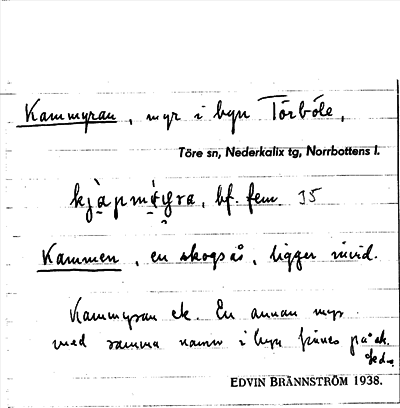 Kammyran, myr i byn Törböle,
Töre sn, Nederkalix tg, Norrbottens l.
bf. fem. 35
Kammen, en skogsås, ligger invid.
Kammyran ek. En annan myr
med samma namn i byn finnes på ek.
EDVIN BRÄNNSTRÖM 1938.